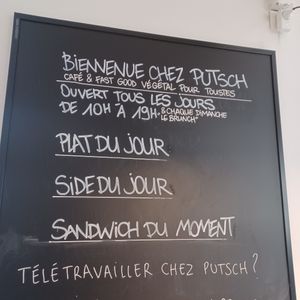 BIENVENUE CHEZ PUTSCH
CAFÉ & FAST GOOD VÉGÉTAL POUR TOUSTES
OUVERT TOUS LES JOURS
DE 10H À 19H & CHAQUE DIMANCHE
"LE BRUNCH"
PLAT DU JOUR
SIDE DU JOUR
SANDWICH DU MOMENT
TÉLÉTRAVAILLER CHEZ PUTSCH ?